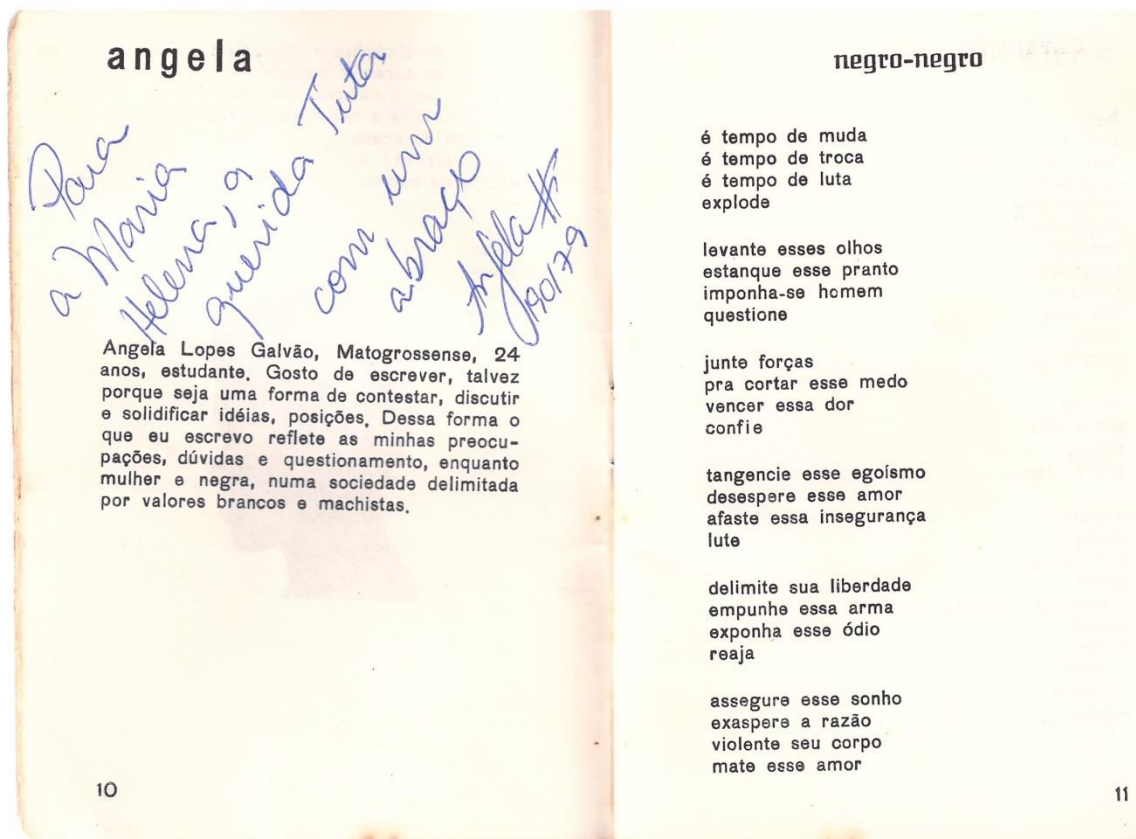 angela
Para
a Maria
Helena, a
querida Tuta
com um
abraço
Angela
/79
Angela Lopes Galvão, Matogrossense, 24
anos, estudante. Gosto de escrever, talvez
porque seja uma forma de contestar, discutir
e solidificar idéias, posições. Dessa forma o
que eu escrevo reflete as minhas preocu-
pações, dúvidas e questionamento, enquanto
mulher e negra, numa sociedade delimitada
por valores brancos e machistas.
10
negro-negro
é tempo de muda
é tempo de troca
é tempo de luta
explode
levante esses olhos
estanque esse pranto
imponha-se homem
questione
junte forças
pra cortar esse medo
vencer essa dor
confie
tangencie esse egoísmo
desespere esse amor
afaste essa insegurança
lute
delimite sua liberdade
empunhe essa arma
exponha esse ódio
reaja
assegure esse sonho
exaspere a razão
violente seu corpo
mate esse amor
11